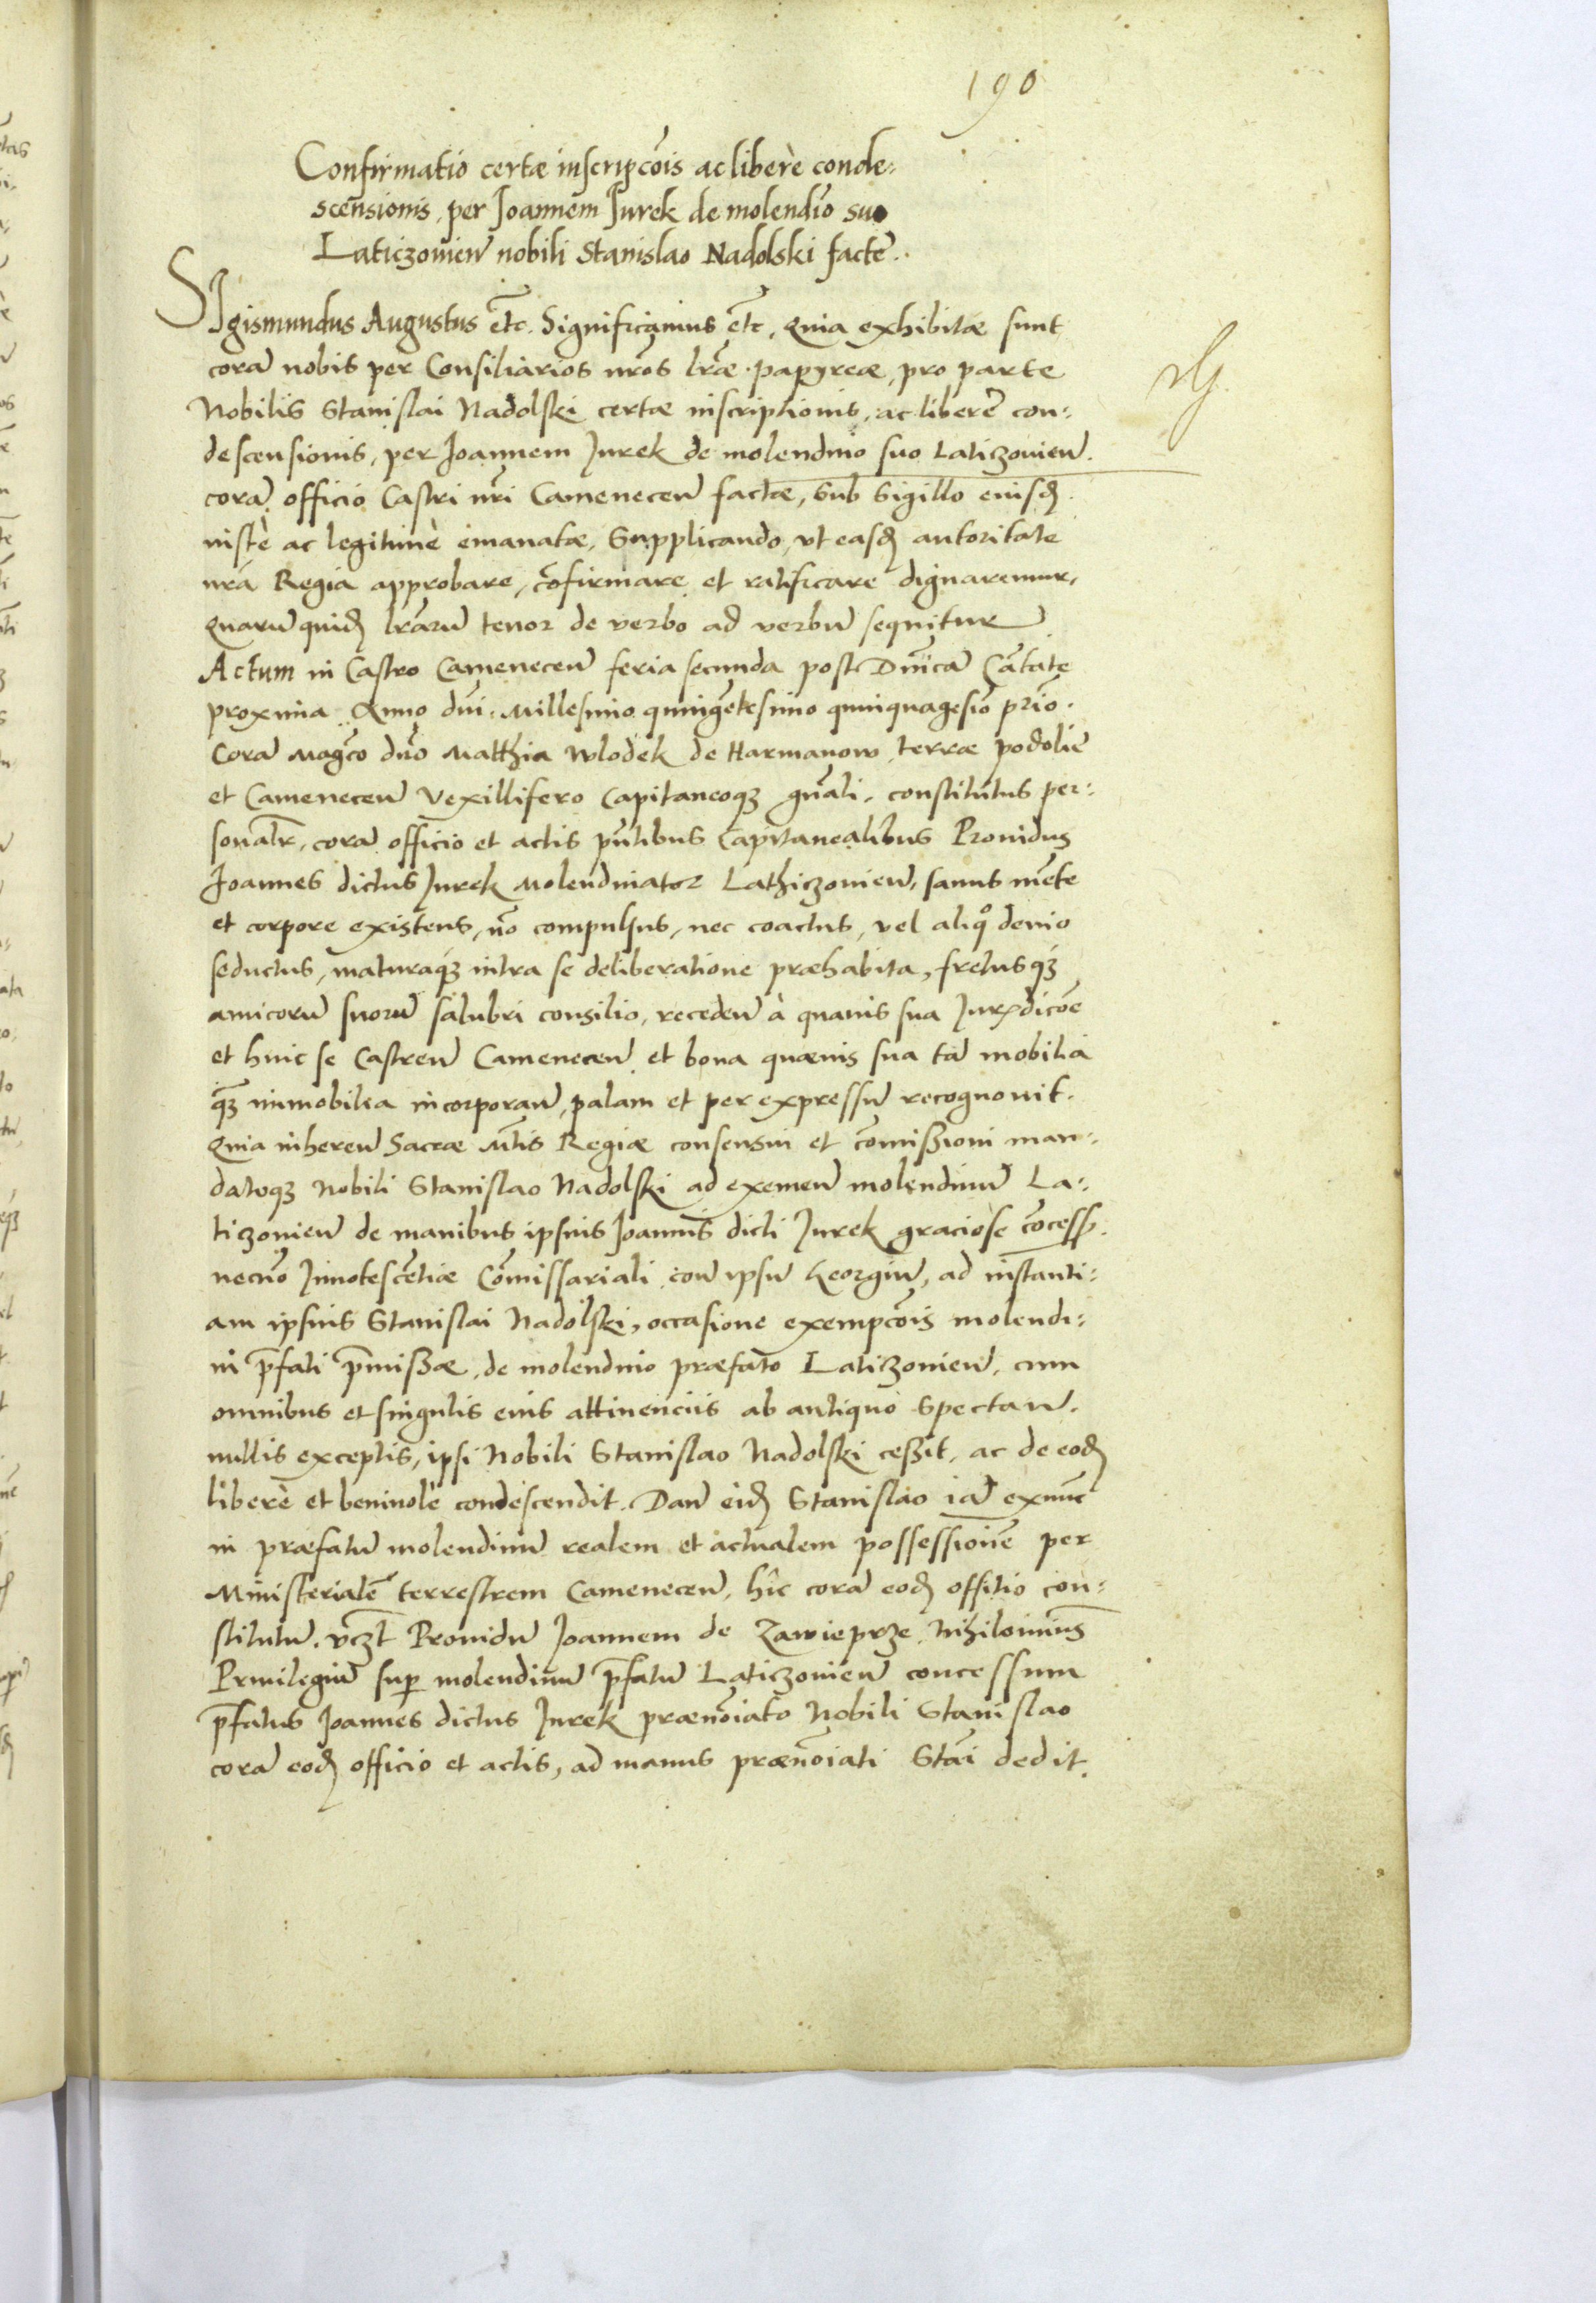 190
Confirmatio certæ inscripc̄ois ac liberè conde-
scensionis, per Joannem Jurek de molendīo suo
Laticzovien̄ nobili Stanislao Nadolski factę.
SIgismundus Augustus etc̄. Significamus etc̄. Quia exhibitæ sunt
corā nobis per Consiliarios nr̄os lr̄æ papyreæ, pro parte
Nobilis Stanislai Nadolski certæ inscriptionis, ac liberè con-
descensionis, per Joannem Jurek de molendino suo Laticzovien̄.
corā officio Castri nr̄i Camenecen̄ factæ, Sub Sigillo eiusd̄
iustè ac legitimè emanatæ, Supplicando, ut easd̄ autoritate
nr̄a Regia approbare, cōfirmare et ratificare dignaremur,
Quarū quid̄ lr̄arū tenor de verbo ad verbū sequitur
Actum in Castro Camenecen̄ feria secunda post Dn̄icā Cātate
proxima Anno dn̄i Millesimo quingētesimo quinquagesīo pr̄io.
Corā Maḡco dn̄o Matthia Wlodek de Harmanow terræ podoliē
et Camenecen̄ Vexillifero Capitaneoq3 gn̄ali, constitutus per-
sonalr̄, corā officio et actis pn̄tibus Capitanealibus Providus
Joannes dictus Jurek Molendinator Lathiczovien̄, sanus mēte
et corpore existens, nō compulsus, nec coactus, vel aliqͦ devio
seductus, maturaq3 intra se deliberatione præhabita, fretusq3
amicorū suorū salubri consilio, receden̄ à quavis sua Jur̄dicōe
et huic se Castren̄ Camenecen̄ et bona quævis sua tā mobilia
q̄3 immobilia incorporan̄, palam et per expressū recognovit.
Quia inheren̄ Sacræ Mt̄is Regiæ consensui et cōmissioni man-
datoq3 Nobili Stanislao Nadolski ad eximen̄ molendinū La-
ticzovien̄ de manibus ipsius Joannis dicti Jurek graciose cōcess̄.
necnō Innotescētiæ Cōmissariali con̄ ipsū Georgiū, ad instanti-
am ipsius Stanislai Nadolski, occasione exempc̄ois molendi-
ni p̄fati p̄missæ, de molendino præfato Laticzovien̄, cum
omnibus et singulis eius attinenciis ab antiquo Spectan̄.
nullis exceptis, ipsi Nobili Stanislao Nadolski cessit, ac de eod̄
liberè et benivolè condescendit. Dan̄ eid̄ Stanislao iā exnūc
in præfatū molendinū realem et actualem possessionē per
Ministerialē terrestrem Camenecen̄, hîc corā eod̄ offitio con-
stitutū. vcz̄t Providū Joannem de Zawieprze Nihilomin̄us
Privilegiū sup̄ molendinū p̄fatū Laticzovien̄ concessum
p̄fatus Joannes dictus Jurek prænōiato Nobili Stanislao
corā eod̄ officio et actis, ad manus prænōiati Stāi dedit.